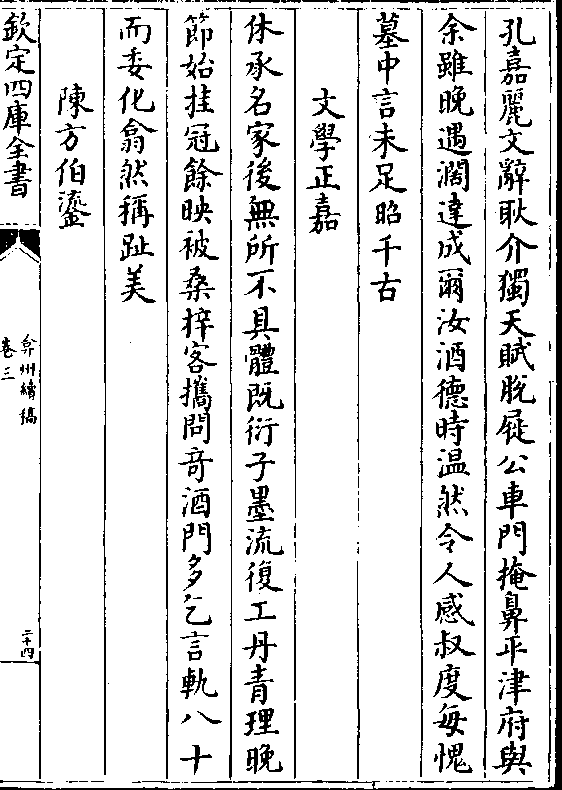 孔嘉麗文辭耿介獨天賦脫屣公車門掩鼻平津府與
余雖晚遇濶達成爾汝酒德時温然令人感叔度每愧
墓中言未足昭千古
文學正嘉
休承名家後無所不具體既衍子墨流復工丹青理晚
節始挂冠餘映被桑梓客攜問竒酒門多乞言軌八十
而委化翕然稱趾美
陳方伯鎏
欽定四庫全書
弇州續稿
卷三
二十四